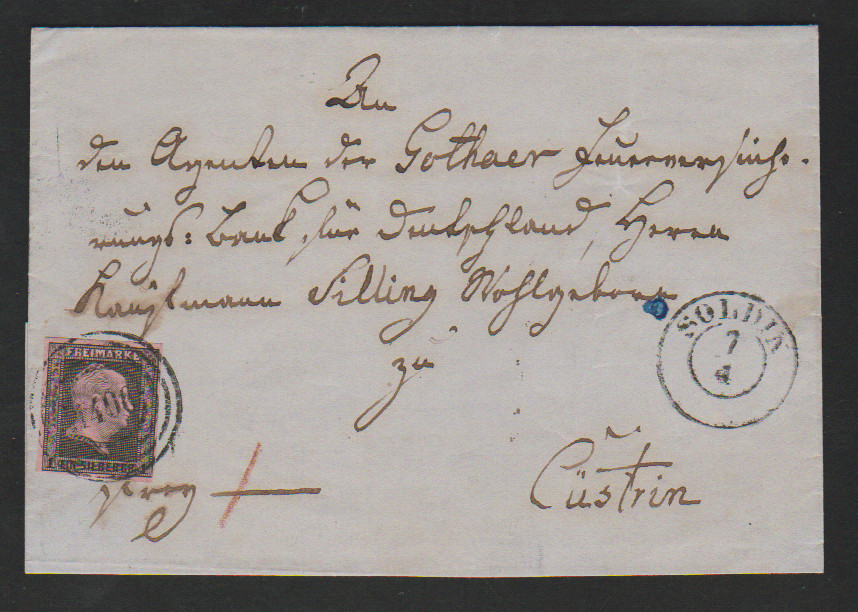 An
den Agenten der Gothaer Feuerversiche-
rungs: Bank für Deutschland, Herrn
Kaufmann Silling Wohlgeborn
zu
Cüstrin
SOLDIN
7
4
FREIMARKE
1 EIN SILBERGR. 1
frey